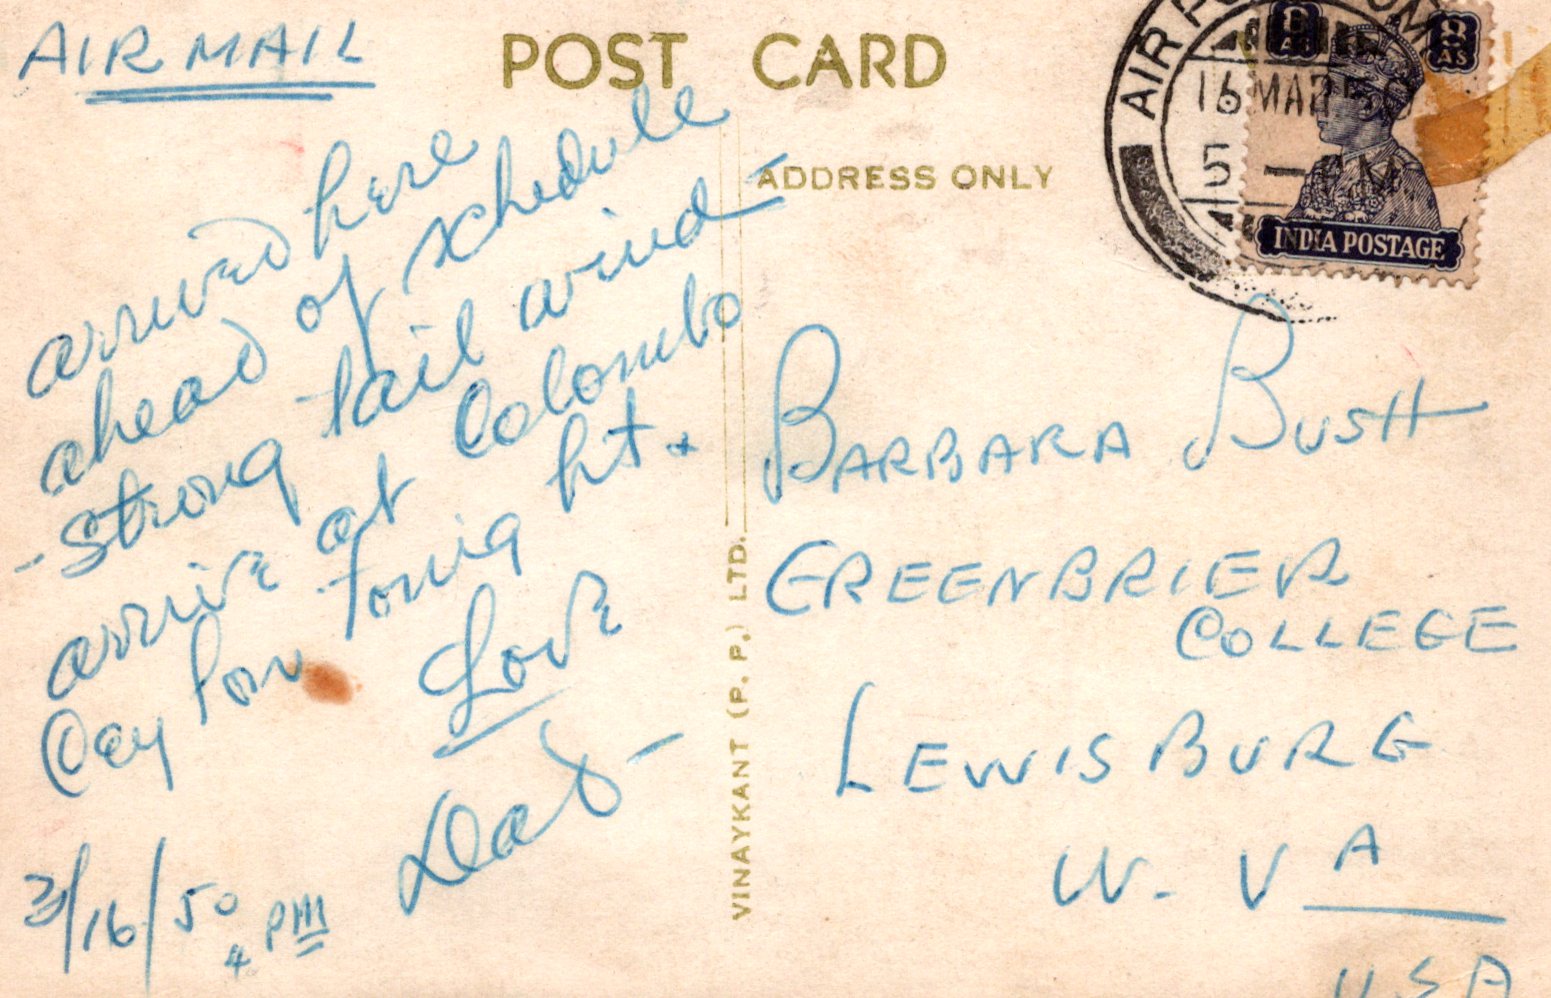 AIRMAIL
POST CARD
ADDRESS ONLY
arrived here
ahead of schedule
- strong tail wind -
arrive at Colombo
Cey for tonight +
Love
Dad -
3/16/50
4 PM
BARBARA BUSH
GREENBRIER
COLLEGE
LEWISBURG
W. VA
USA
VINAYKANT (P. P.) LTD.
AIR
16 MAR
5 - PM
AS
AS
INDIA POSTAGE